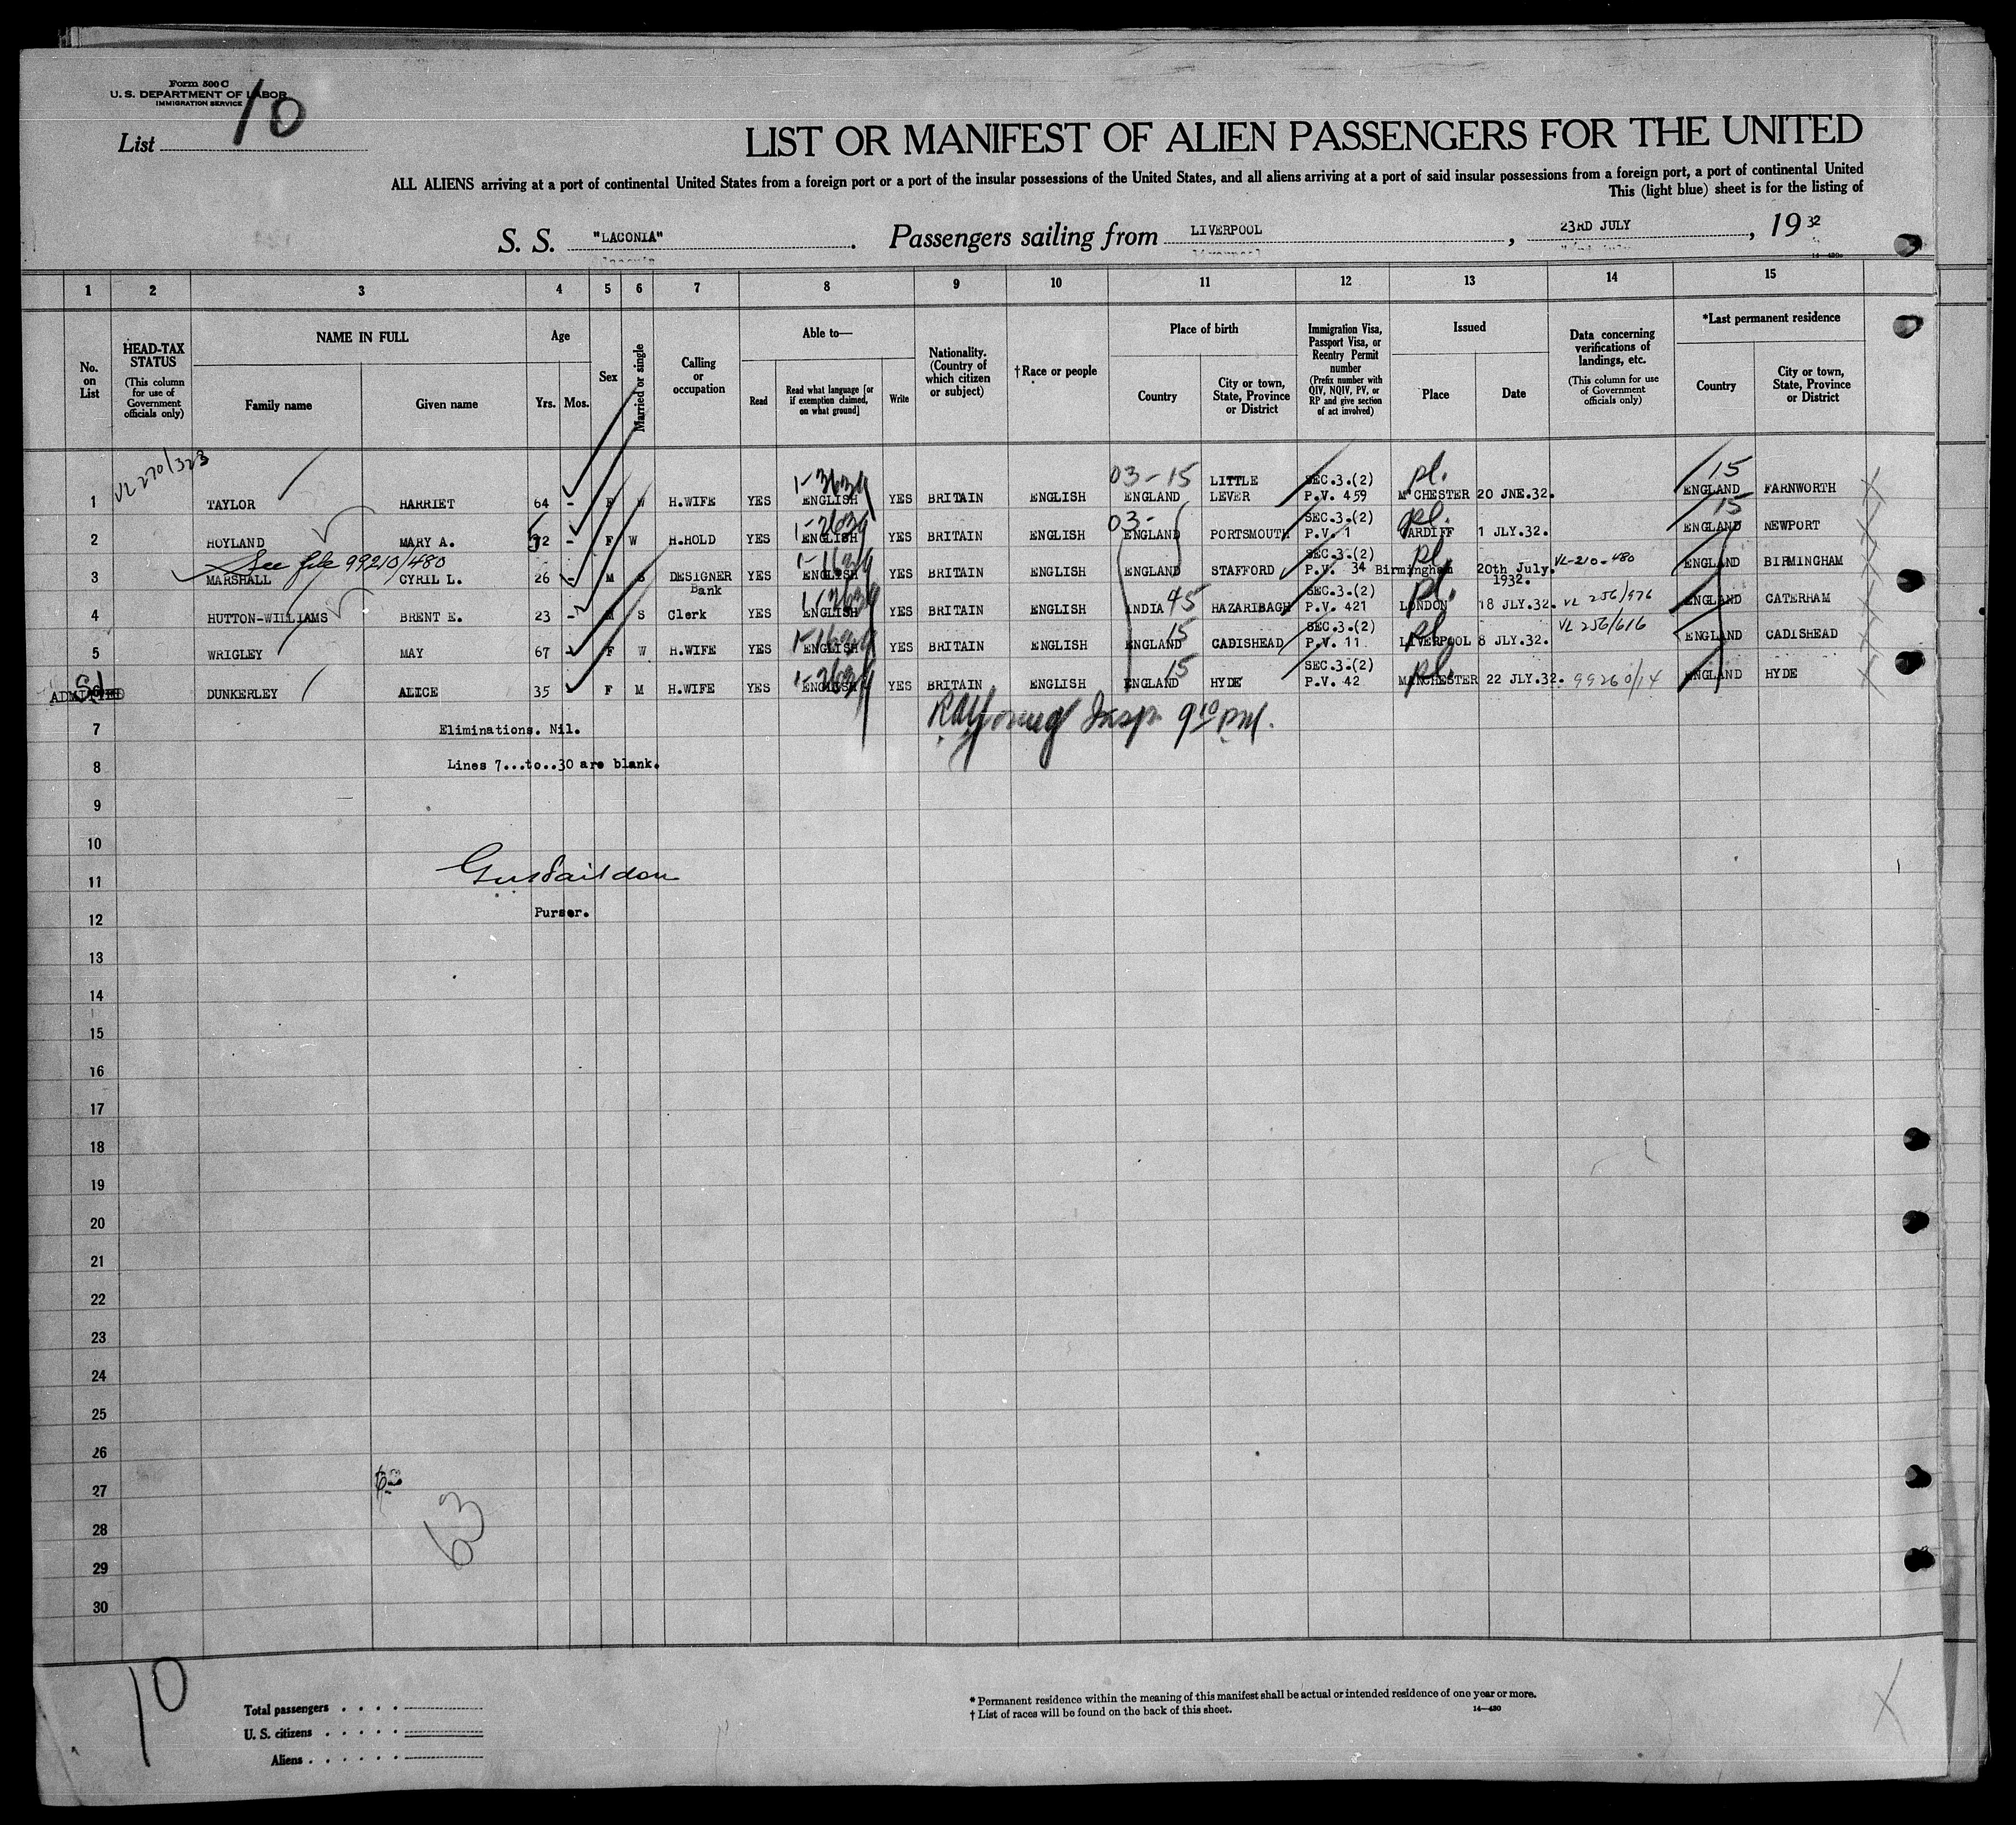 Form 500 C
U. S. DEPARTMENT OF LABOR
IMMIGRATION SERVICE
List 10
LIST OR MANIFEST OF ALIEN PASSENGERS FOR THE UNITED
ALL ALIENS arriving at a port of continental United States from a foreign port or a port of the insular possessions of the United States, and all aliens arriving at a port of said insular possessions from a foreign port, a port of continental United
This (light blue) sheet is for the listing of
S. S. "LACONIA". Passengers sailing from LIVERPOOL, 23RD JULY, 1932
14—430
1 2 3 4 5 6 7 8 9 10 11 12 13 14 15
No. on List
HEAD-TAX STATUS (This column for use of Government officials only)
NAME IN FULL
Family name
Given name
Age
Yrs. Mos.
Sex
Married or single
Calling or occupation
Able to—
Read
Read what language [or if exemption claimed, on what ground]
Write
Nationality. (Country of which citizen or subject)
†Race or people
Place of birth
Country
City or town, State, Province or District
Immigration Visa, Passport Visa, or Reentry Permit number (Prefix number with QIV, NQIV, PV, or RP and give section of act involved)
Issued
Place
Date
Data concerning verifications of landings, etc. (This column for use of Government officials only)
*Last permanent residence
Country
City or town, State, Province or District
VL 270/323
03-15 pl. 15
1 TAYLOR HARRIET 64 - F W H.WIFE YES ENGLISH YES BRITAIN ENGLISH ENGLAND LITTLE LEVER SEC.3.(2) P.V. 459 M'CHESTER 20 JNE.32. ENGLAND FARNWORTH
03- pl. 15
2 HOYLAND MARY A. 52 - F W H.HOLD YES ENGLISH YES BRITAIN ENGLISH ENGLAND PORTSMOUTH SEC.3.(2) P.V. 1 CARDIFF 1 JLY.32. ENGLAND NEWPORT
See file 99210/480
pl
3 MARSHALL CYRIL L. 26 - M S DESIGNER YES ENGLISH YES BRITAIN ENGLISH ENGLAND STAFFORD SEC.3.(2) P.V. 34 Birmingham 20th July. 1932. VL-210-480 ENGLAND BIRMINGHAM
45 pl.
4 HUTTON-WILLIAMS BRENT E. 23 - M S Bank Clerk YES ENGLISH YES BRITAIN ENGLISH INDIA HAZARIBAGH SEC.3.(2) P.V. 421 LONDON 18 JLY.32. VL 256/976 ENGLAND CATERHAM
15 pl
5 WRIGLEY MAY 67 - F W H.WIFE YES ENGLISH YES BRITAIN ENGLISH ENGLAND CADISHEAD SEC.3.(2) P.V. 11 LIVERPOOL 8 JLY.32. VL 256/616 ENGLAND CADISHEAD
15 pl.
ADMITTED SI
6 DUNKERLEY ALICE 35 F M H.WIFE YES ENGLISH YES BRITAIN ENGLISH ENGLAND HYDE SEC.3.(2) P.V. 42 MANCHESTER 22 JLY.32. 99260/14 ENGLAND HYDE
Insp 9 10 PM.
7 Eliminations. Nil.
8 Lines 7...to..30 are blank.
9
10
11
12 Purser.
13
14
15
16
17
18
19
20
21
22
23
24
25
26
27
28
29
30
63
10
Total passengers . . . .
U. S. citizens . . . . .
Aliens . . . . . .
* Permanent residence within the meaning of this manifest shall be actual or intended residence of one year or more.
† List of races will be found on the back of this sheet.
14—430